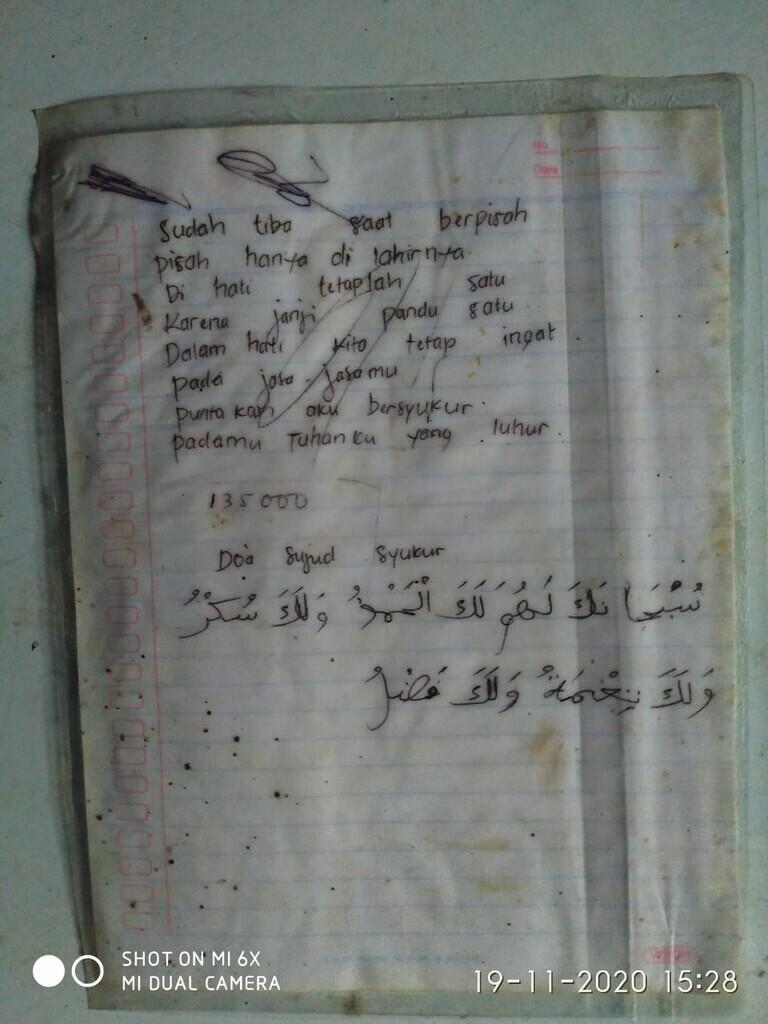 No.
Date
Sudah tiba saat berpisah
pisah hanya di lahirnya
Di hati tetaplah satu
Karena janji pandu satu
Dalam hati kita tetap ingat
pada jasa-jasamu
punta kan aku bersyukur
padamu Tuhanku yang luhur
135000
Doa Sujud Syukur
سُبْحَا نَكَ لَهُمَ لَكَ الْحَمْدُ وَلَكَ سُكْرُ
وَلَكَ نِعْمَةُ وَلَكَ فَضْلُ
SHOT ON MI 6X
MI DUAL CAMERA
19-11-2020 15:28